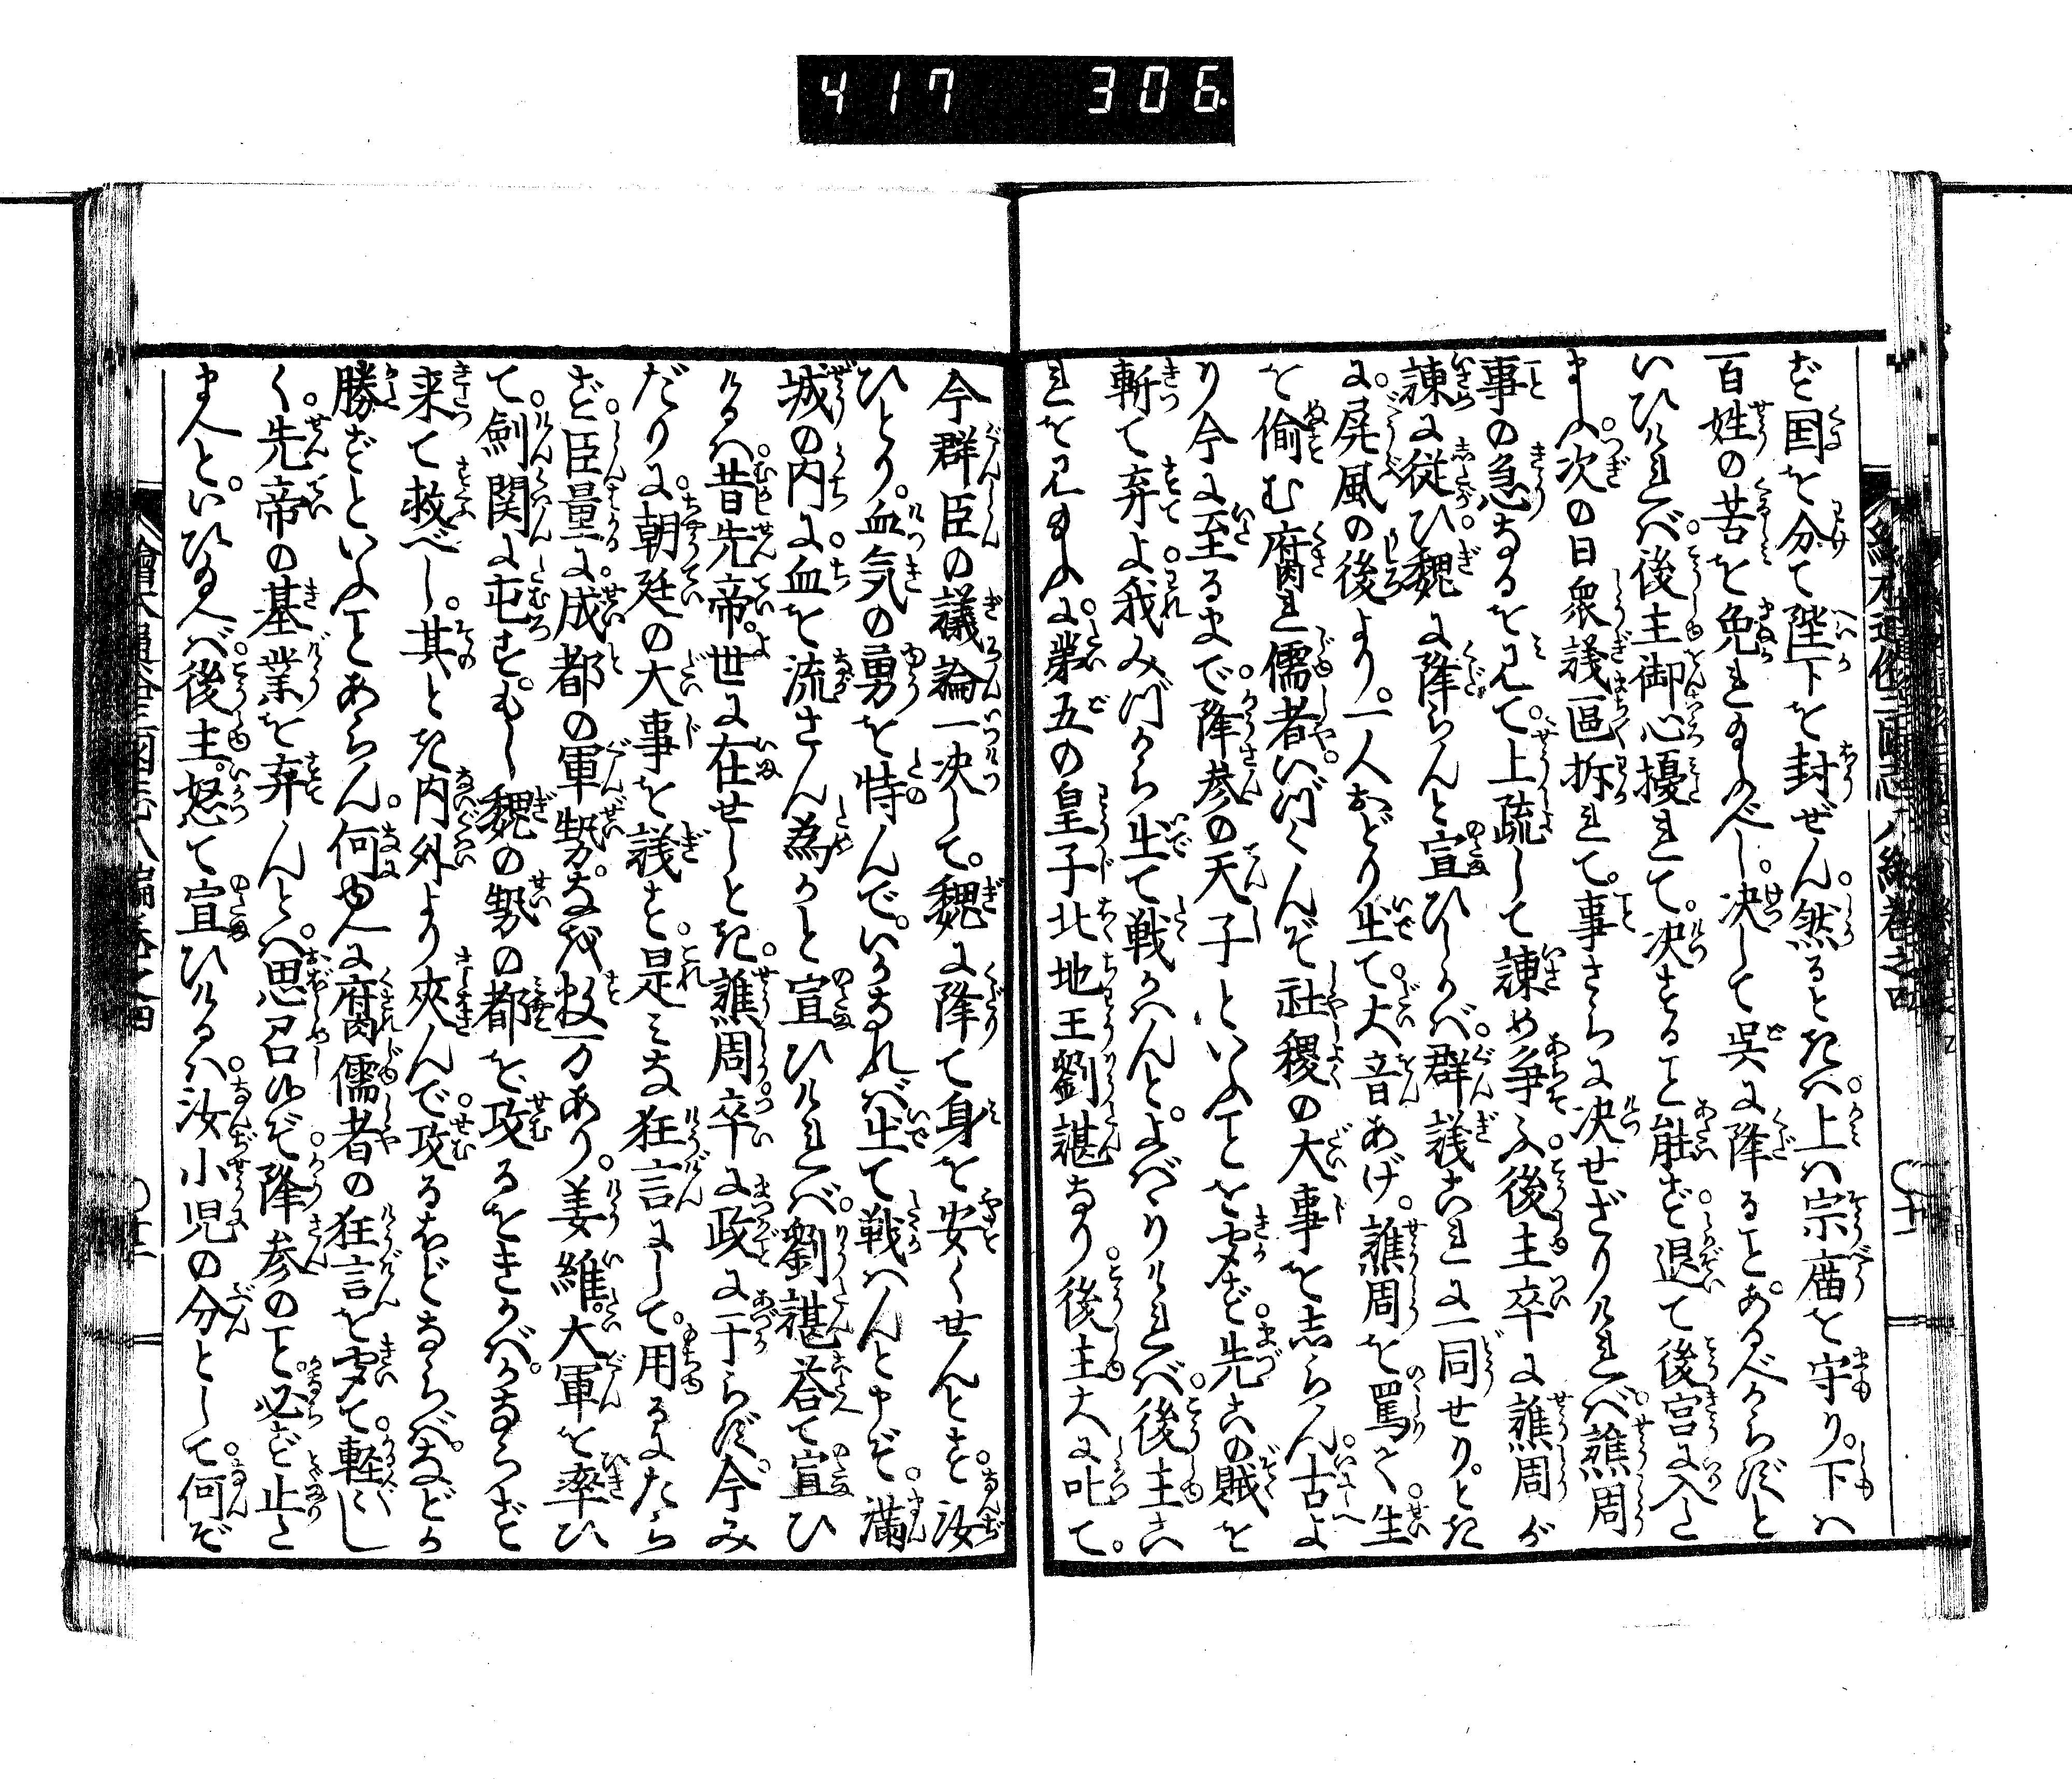 417 306
ず国を分て陛下を封ぜん。然るときハ。上ハ宗廟を守り。下ハ
百姓の苦を免れ給ふべし。決して呉に降ること。あるべからずと
いひければ後主御心擾れて。決すること能ず退て後宮に入
給ふ。次の日衆議区拆れて。事さらに决せざりければ。譙周
事の急なるを見て。上疏して諫め争ふ。後主卒に譙周が
諫に従ひ。魏に降らんと宣ひしかバ。群議これに一同せり。とき
に。屏風の後より。一人おどり出て。大音あげ。譙周を罵て。生
を偷む腐れ儒者。いづくんぞ社稷の大事を志らん。古よ
り今に至るまで。降参の天子といふことを聞ず。先この賊を
斬て弃よ。我みづから出て戦かハんと。よバゝりければ。後主こ
れを見給ふに。第五の皇子北地王劉諶なり。後主大に叱て。
今群臣の議論一决して。魏に降て身を安くせんとす。汝
ひとり。血気の勇を恃んで。いかなれバ出て戦ハんと申ぞ。満
城の内に血を流さん為かと宣ひければ。劉諶答て宣ひ
けるハ。昔先帝。世に在せしとき。譙周卒に政に干らず。今み
だりに。朝廷の大事を議す。是みな狂言にして。用るにたら
ず。臣量に。成都の軍勢。なを数万あり。姜維。大軍を率ひ
て。剣関に屯す。もし魏の勢の都を攻るをきかバ。かならず
来て救べし。其とき内外より夾んで。攻るほどならバ。などか
勝ざといふことあらん。何ゆへに腐儒者の狂言を聞て。軽〻し
く。先帝の基業を弃んとハ。思召けぞ。降参のこと。必ず止
まへと。いひければ。後主。怒て宣ひけるハ。汝小児の分として。何ぞ